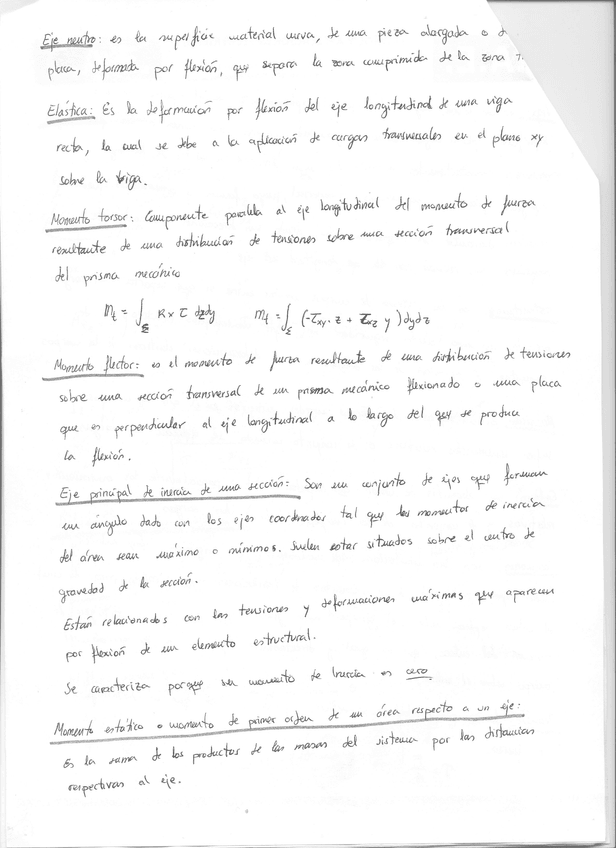 Eje neutro: es la superficie material curva, de una pieza alargada o d
placa, deformada por flexión, que separa la zona comprimida de la zona
Elástica: Es la deformación por flexión del eje longitudinal de una viga
recta, la cual se debe a la aplicación de cargas transversales en el plano xy
sobre la viga.
Momento torsor: Componente paralela al eje longitudinal del momento de fuerza
resultante de una distribución de tensiones sobre una sección transversal
del prisma mecánico
Mt = ∫Σ R x τ dzdy   Mt = ∫Σ (-τxy · z + τxz y) dydz
Momento flector: es el momento de fuerza resultante de una distribución de tensiones
sobre una sección transversal de un prisma mecánico flexionado o una placa
que es perpendicular al eje longitudinal a lo largo del que se produce
la flexión.
Eje principal de inercia de una sección: Son un conjunto de ejes que forman
un ángulo dado con los ejes coordenador tal que los momentos de inercia
del área sean máximo o mínimos. Suelen estar situados sobre el centro de
gravedad de la sección.
Están relacionados con las tensiones y deformaciones máximas que aparecen
por flexión de un elemento estructural.
Se caracteriza porque su momento de Inercia es cero
Momento estático o momento de primer orden de un área respecto a un eje:
Es la suma de los productos de las masas del sistema por las distancias
respectivas al eje.